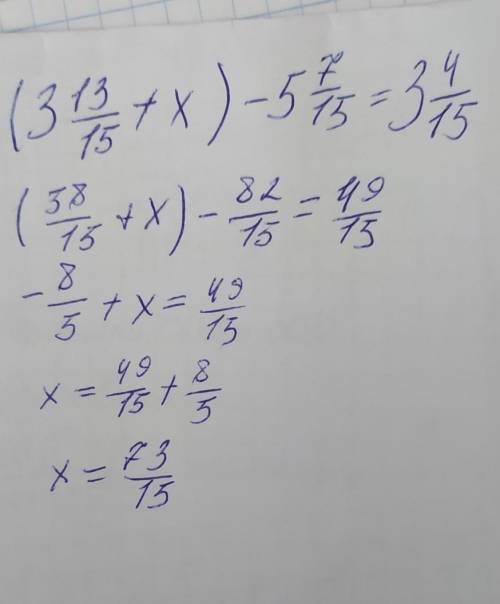 (3 13/15 + x) - 5 7/15 = 3 4/15
(58/15 + x) - 82/15 = 49/15
- 8/5 + x = 49/15
x = 49/15 + 8/5
x = 73/15